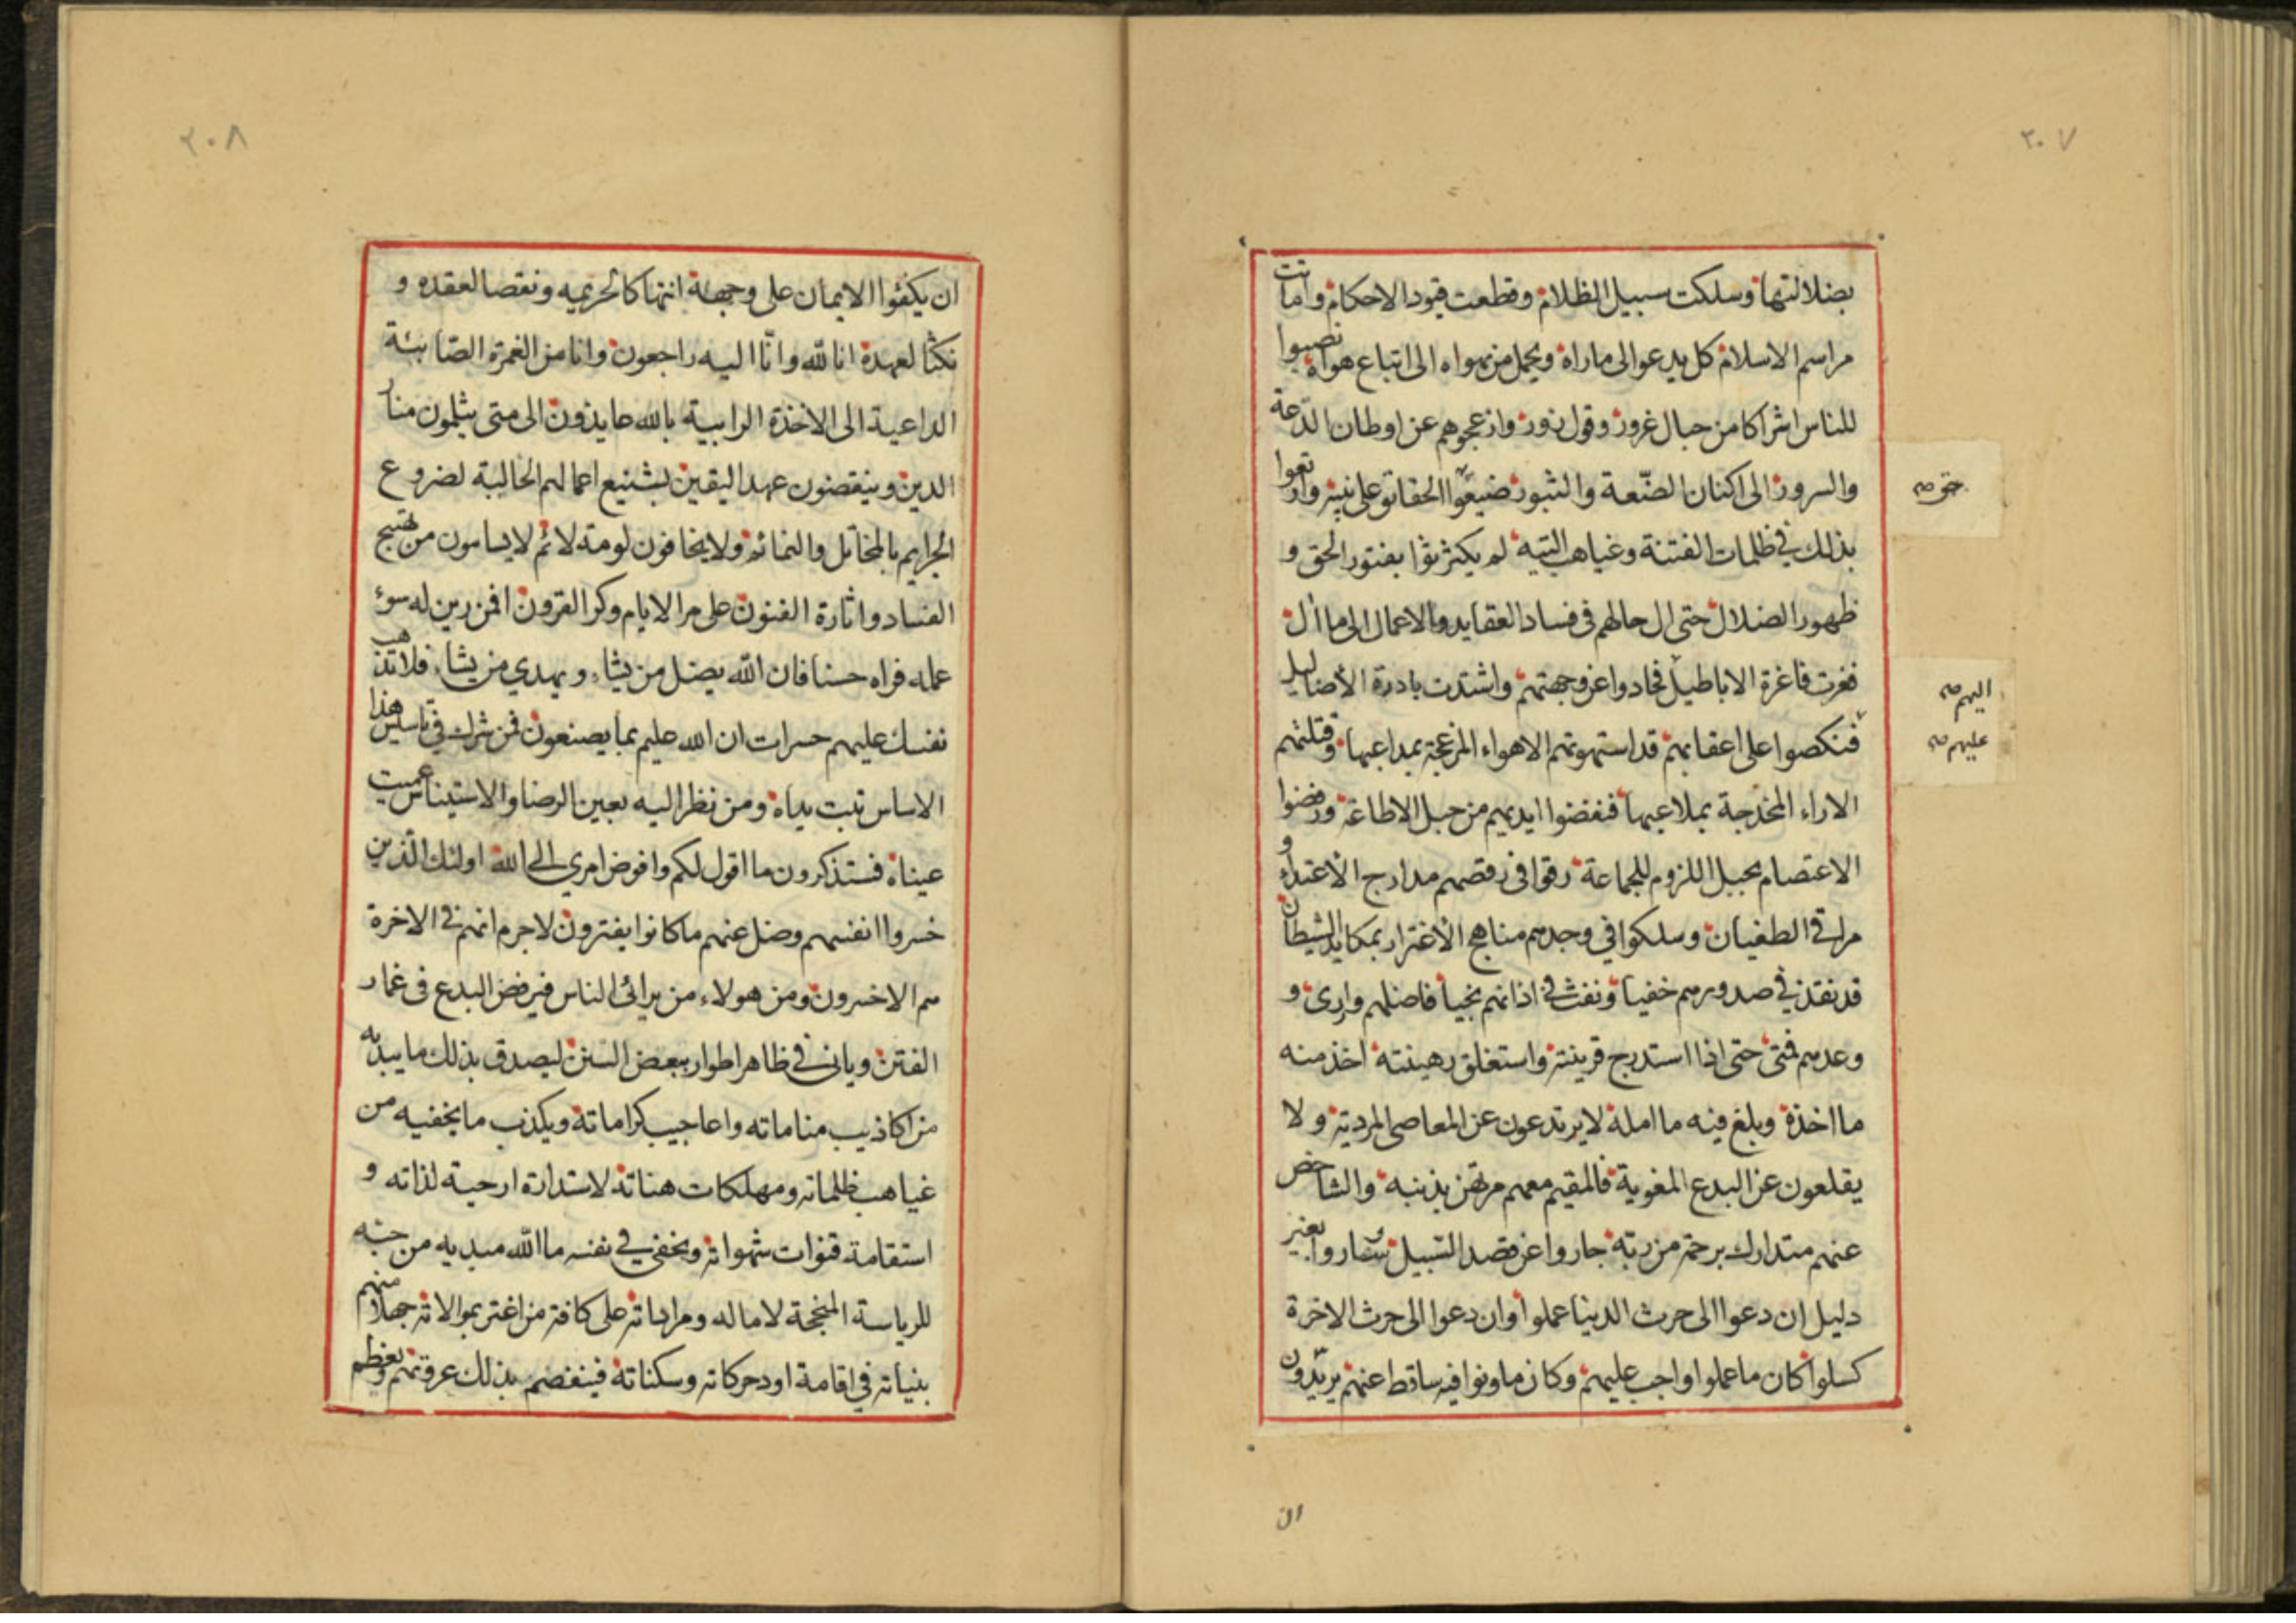 ٢٠٧
بضلالتها وسلكت سبيل الظلام وقطعت قيود الاحكام واماتت
مراسم الاسلام كل يدعو الى ماراه ويحمل من يهواه الى اتباع هواه نصبوا
للناس اشراكا من حبال غرور وقول زور وازعجوهم عن اوطان الدعة
والسرور الى اكنان الضّعة والثبور ضيعوا الحقائق على نيته وارتعوا
بذلك في ظلمات الفتنة وغياهب التيه لم يكترثوا بفتور الحق و
ظهور الضلال حتى ال حالهم فى فساد العقايد والاعمال الى ما ال
فغرت فاغرة الاباطيل فحادوا عن وجهتهم واشتدت بادرة الأضاليل
فنكصوا على اعقابهم قد استهوتهم الاهواء المزعجة بمداعبها وقتلتهم
الاراء المخدجة بملاعبها فنفضوا ايديهم من حبل الاطاعة ورفضوا
الاعتصام بحبل اللزوم للجماعة رقوا فى رقصهم مدارج الأعتداء و
مراقي الطغيان وسلكوا في وجدهم مناهج الأغترار بمكايد الشيطان
قد نفذ في صدورهم خفيا ونفث في اذانهم نجيا فاضلهم واردى و
وعدهم فمنى حتى اذا استدرج قرينته واستغلق رهينته اخذ منه
ما اخذه وبلغ فيه ما امله لا يرتدعون عن المعاصى المردية ولا
يقلعون عن البدع المغوية فالمقيم معهم مرتهن بذنبه والشاخص
عنهم متدارك برحمة من ربه جاروا عن قصد السّبيل وساروا بغير
دليل ان دعوا الى حرث الدنيا عملوا وان دعوا الى حرث الاخرة
كسلوا كان ما عملوا واجب عليهم وكان ما ونوا فيه ساقط عنهم يريدون
اليهم
عليهم
ان
٢٠٨
ان يكفوا الايمان على وجهه انتهاكا لحريمه ونقصا لعقده و
نكثا لعهده انا لله وانّا اليه راجعون وانا من الغمرة الصّابئة
الداعية الى الاخذة الرابية بالله عايذون الى متى يثلمون منار
الدين وينقضون عهد اليقين بشنيع اعمالهم الحالبة لضروع
الجرايم بالمخاتل والنمائم ولا يخافون لومة لائم لا يسامون من تهييج
الفساد واثارة الفنون على مر الايام وكر القرون افمن زين له سوء
عمله فراه حسنا فان الله يضل من يشاء ويهدي من يشاء فلا تذهب
نفسك عليهم حسرات ان الله عليم بما يصنعون فمن شرك في تاسيس هذا
الاساس تبت يداه ومن نظر اليه بعين الرضا والاستيناس عميت
عيناه فستذكرون ما اقول لكم وافوض امري الى الله اولئك الذين
خسروا انفسهم وضل عنهم ما كانوا يفترون لا جرم انهم في الاخرة
هم الاخسرون ومن هولاء من يرائى الناس فيرفض البدع فى غمار
الفتن وياتى في ظاهر اطواره ببعض السنن ليصدق بذلك ما يبديه
من اكاذيب مناماته واعاجيب كراماته ويكذب ما يخفيه من
غياهب ظلماته ومهلكات هناته لاستدارة ارحية لذاته و
استقامة قنوات شهواته ويخفي في نفسه ما الله مبديه من حبّه
للرياسة المبخجة لاماله ومراداته على كافة من اغتر بموالاته جهلا منهم
بنياته في اقامة اود حركاته وسكناته فينفضم بذلك عروتهم ويعظم